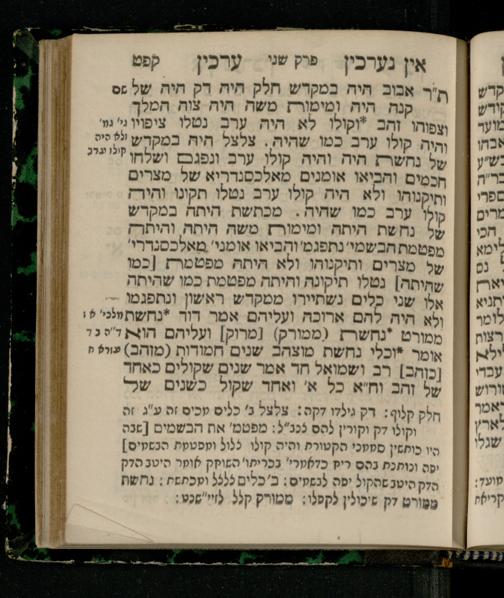 אין נערכין פרק שני ערכין קפט
ת"ר אבוב היה במקדש חלק היה דק היה של
קנה היה ומימות משה היה צוה המלך
וצפוהו זהב *וקולו לא היה ערב נטלו ציפויו
והיה קולו ערב כמו שהיה. צלצל היה במקדש
של נחשת היה והיה קולו ערב ונפגם ושלחו
חכמים והביאו אומנים מאלכסנדריא של מצרים
ותיקנוהו ולא היה קולו ערב נטלו תקונו והיה
קולו ערב כמו שהיה. מכתשת היתה במקדש
של נחשת היתה ומימות משה היתה והיתה
מפטמת הבשמי' נתפגמ' והביאו אומני' מאלכסנדרי'
של מצרים ותיקנוה ולא היתה מפטמת [כמו
שהיתה] נטלו תיקונה והיתה מפטמת כמו שהיתה
אלו שני כלים נשתיירו ממקדש ראשון ונתפגמו
ולא היה להם ארוכה ועליהם אמר דוד *נחשת
ממורט *נחשת (ממורק) [מרוק] ועליהם הוא
אומר *וכלי נחשת מוצהב שנים חמודות (מזהב)
[כזהב] רב ושמואל חד אמר שנים שקולים כאחד
של זהב וח"א כל א' ואחד שקול כשנים של
שם
ולא היה
קולו ערב
מלכי' א ז
ד"ה ב ד
עזרא ח
חלק קלוף: דק גילדו דקה: צלצל ב' כלים מכים זה ע"ג זה
וקולו דק וקורין להם
מפטמ' את הבשמים [שבה
היו כותשין סממני הקטורת והיה קולו כלול ומפטמת הבשמים]
יפה ונותנת בהם ריח
השוחק אומר היטב הדק
הדק היטב שהקול יפה לבשמים: ב' כלים צלצל ומכתשת: נחשת
ממורט דק שיכולין לקפלו: ממורק קלל